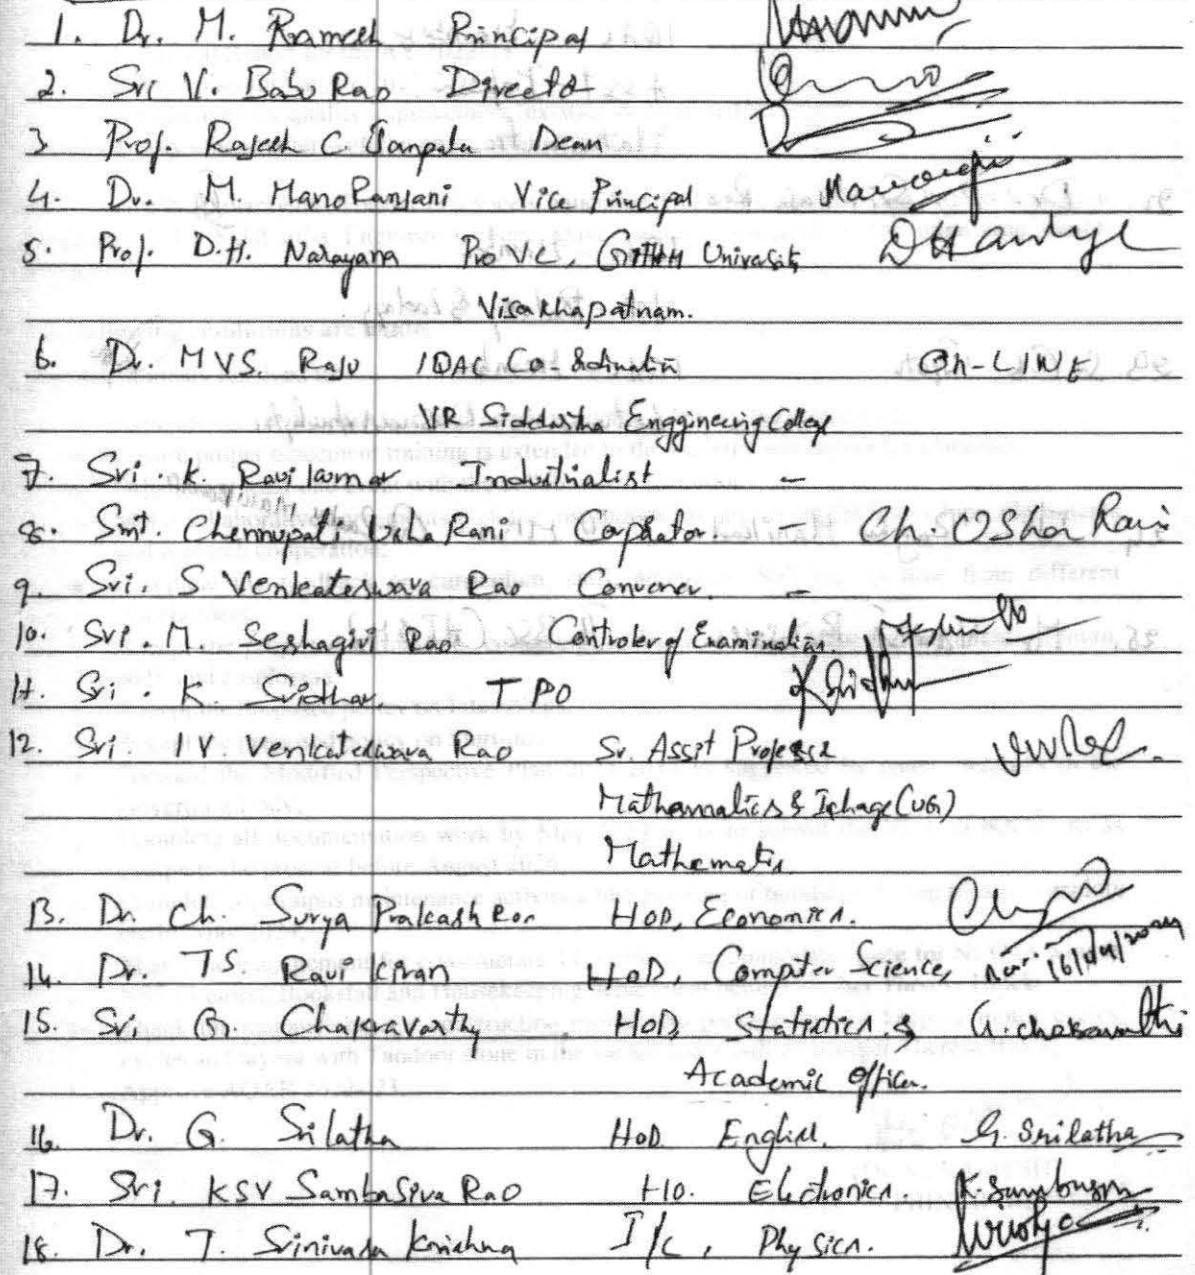 1. Dr. M. Ramesh Principal
2. Sri V. Babu Rao Director
3 Prof. Rajesh C. Jampala Dean
4. Dr. M. ManoRanjani Vice Principal
5. Prof. D.H. Narayana Pro VC, University
Visakhapatnam.
6. Dr. MVS. Raju IQAC Co-Ordinator On-LINE
VR Siddartha Enggineering College
7. Sri. K. Ravi kumar Industrialist -
8. Smt. Chennupati Usha Rani Corporator. Ch. Usha Rani
9. Sri. S Venkateswara Rao Convener. -
10. Sri. M. Seshagiri Rao Controler of Examination
11. Sri. K. Sridhar T PO K Sridhar
12. Sri. I V. Venkateswara Rao Sr. Assit Professor
Mathematics & Ichage (UG)
Mathematics
13. Dr. Ch. Surya Prakash Rao HOD, Economics.
14. Dr. T.S. Ravi Kiran HOD, Computer Science,
15. Sri. G. Chakravarthy HOD, Statistics & G. chakravarthi
Academic officer.
16. Dr. G. Srilatha HOD English. G. Srilatha
17. Sri. KSV SambaSiva Rao HO. Electronics.
18. Dr. T. Srinivasa Krishna I/c, Physics.